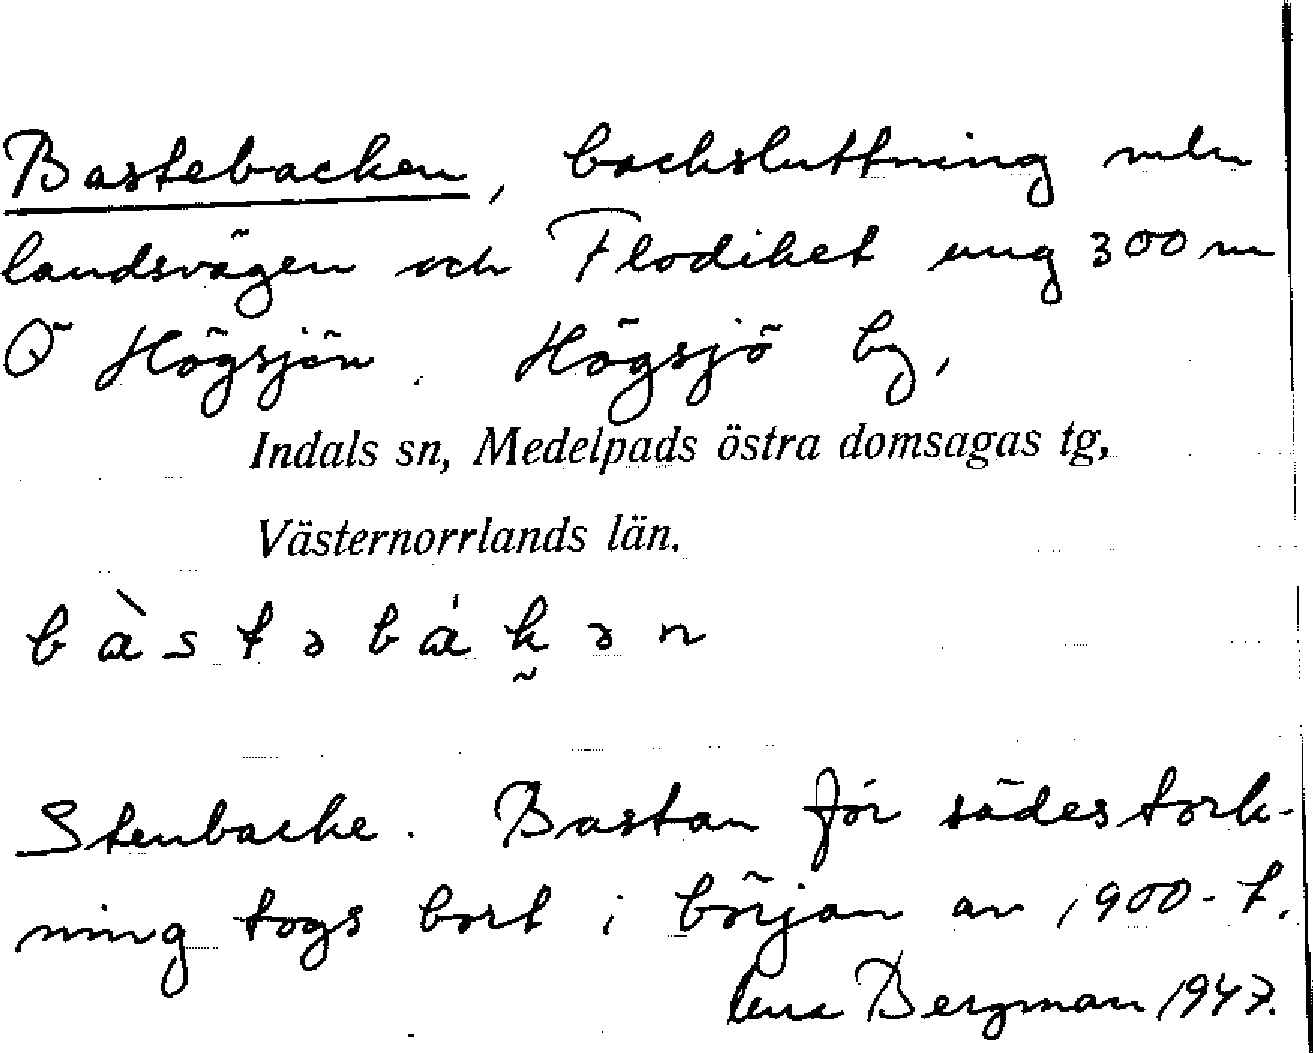 Bastebacken, backsluttning mln
landsvägen och Flodiket ung 300 m
Ö Högsjön. Högsjö by,
Indals sn, Medelpads östra domsagas tg,
Västernorrlands län.
bàstəbák̰ən
Stenbacke. Bastan för sädestork-
ning togs bort i början av 1900-t.
Bergman 1947.